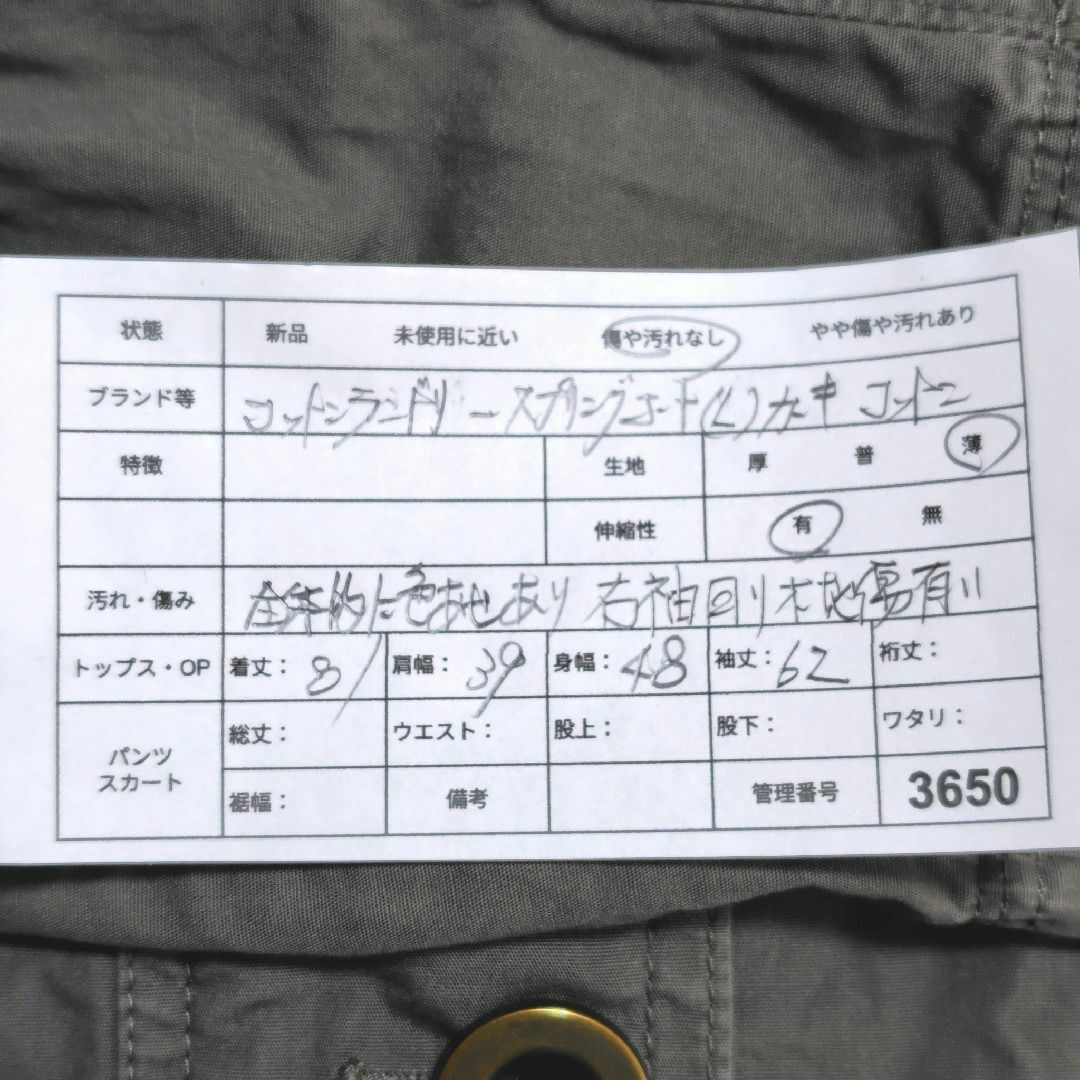 状態 新品 未使用に近い 傷や汚れなし やや傷や汚れあり
ブランド等 コットンランドリー スプリングコート(L)カーキ コットン
特徴 生地 厚 普 薄
伸縮性 有 無
汚れ・傷み 全体的に色あせあり 右袖回り 傷有り
トップス・OP 着丈: 81 肩幅: 39 身幅: 48 袖丈: 62 裄丈:
パンツ スカート 総丈: ウエスト: 股上: 股下: ワタリ:
裾幅: 備考 管理番号 3650